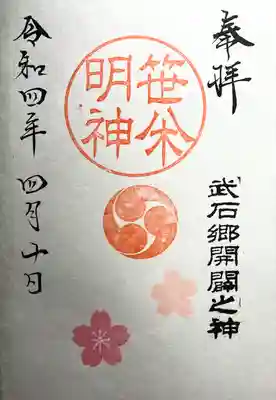 奉拝
武石郷開闢之神
笹
明神
令和四年 四月十日